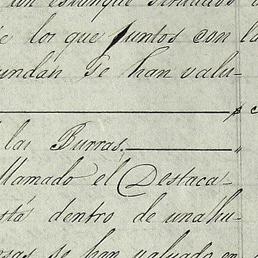 un estanque situados
e los que juntos con la
undan Se han valu-
las Burras.
llamado el Destaca-
stá dentro de una hu-
se han valuado en